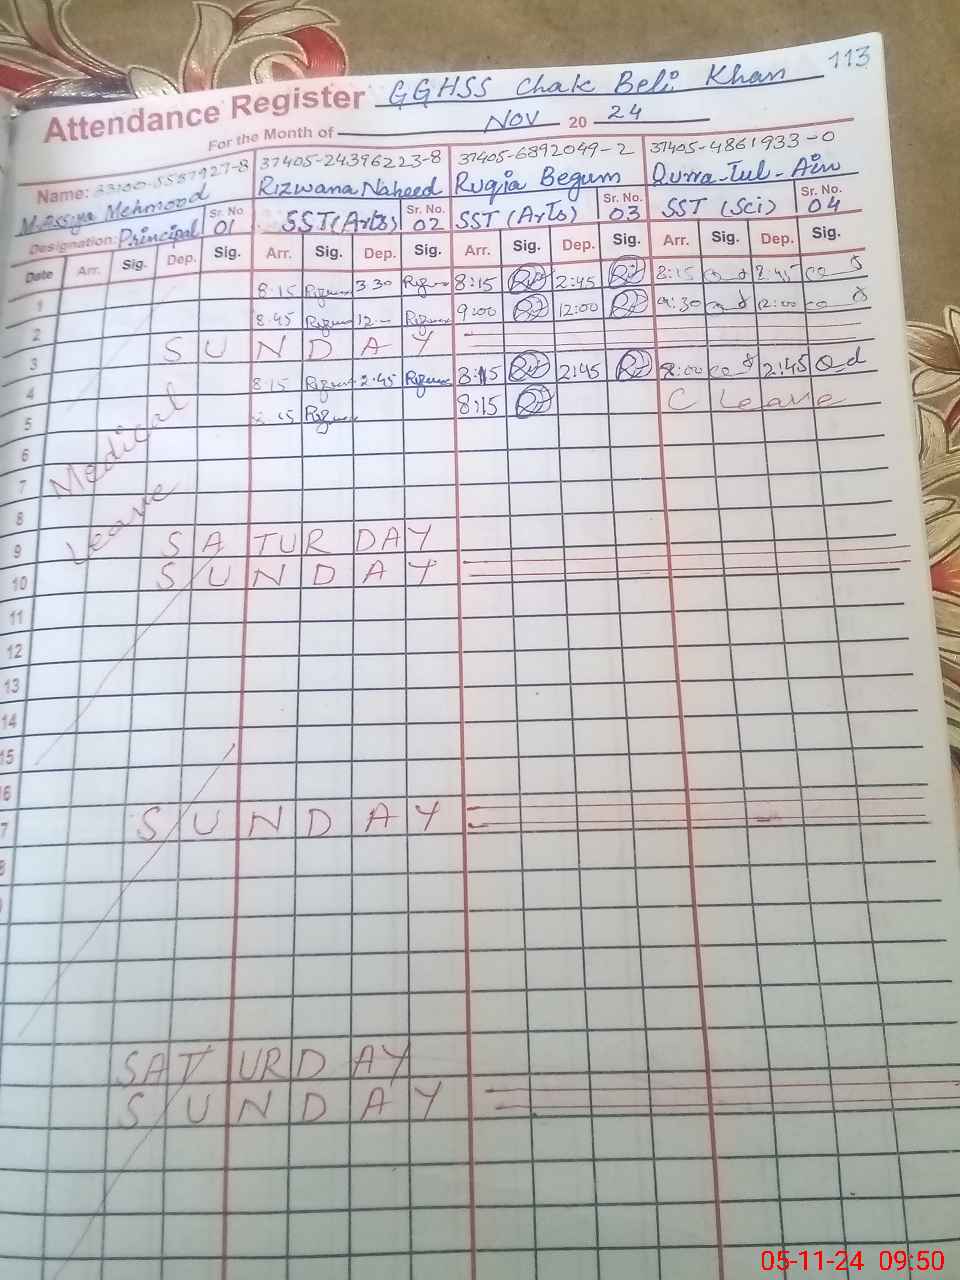 113
Attendance Register GGHSS Chak Beli Khan
For the Month of Nov 20 24
Name: 37405-24396223-8 37405-6892049-2 37405-4861933-0
M.Assiya Mehmood Rizwana Naheed Ruqia Begum Qurra-Tul-Ain
Designation: Principal Sr. No. 01 SST (Arts) Sr. No. 02 SST (Arts) Sr. No. 03 SST (Sci) Sr. No. 04
Date Arr. Sig. Dep. Sig. Arr. Sig. Dep. Sig. Arr. Sig. Dep. Sig. Arr. Sig. Dep. Sig.
1 8:15 3:30 8:15 2:45 8:15 2:45
2 8:45 9:00 12:00 9:30 12:00
3 SUNDAY
4 8:15 2:45 8:15 2:45 8:00 2:45
5 8:15 C Leave
6
7
8
Medical
Leave
9 SATURDAY
10 SUNDAY
11
12
13
14
15
6
7 SUNDAY
8
SATURDAY
SUNDAY
05-11-24 09:50